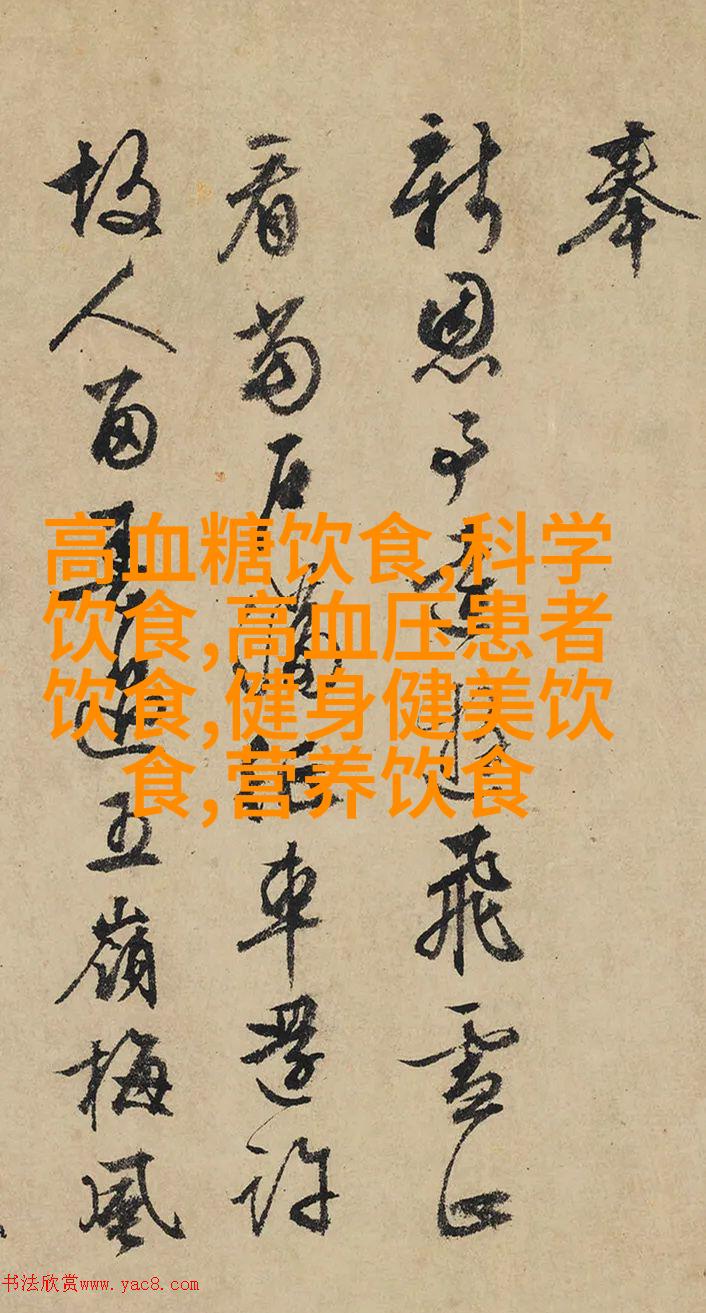 奉
新恩予飛雪正
看車還許
故人五嶺梅風
高血糖饮食,科学
饮食,高血压患者
饮食,健身健美饮
食,营养饮食
书法欣赏www.yac8.com